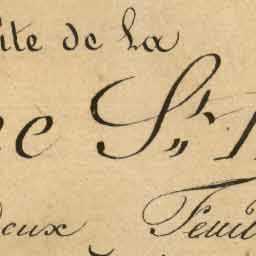 ite de la
e St.
Deux Feuil